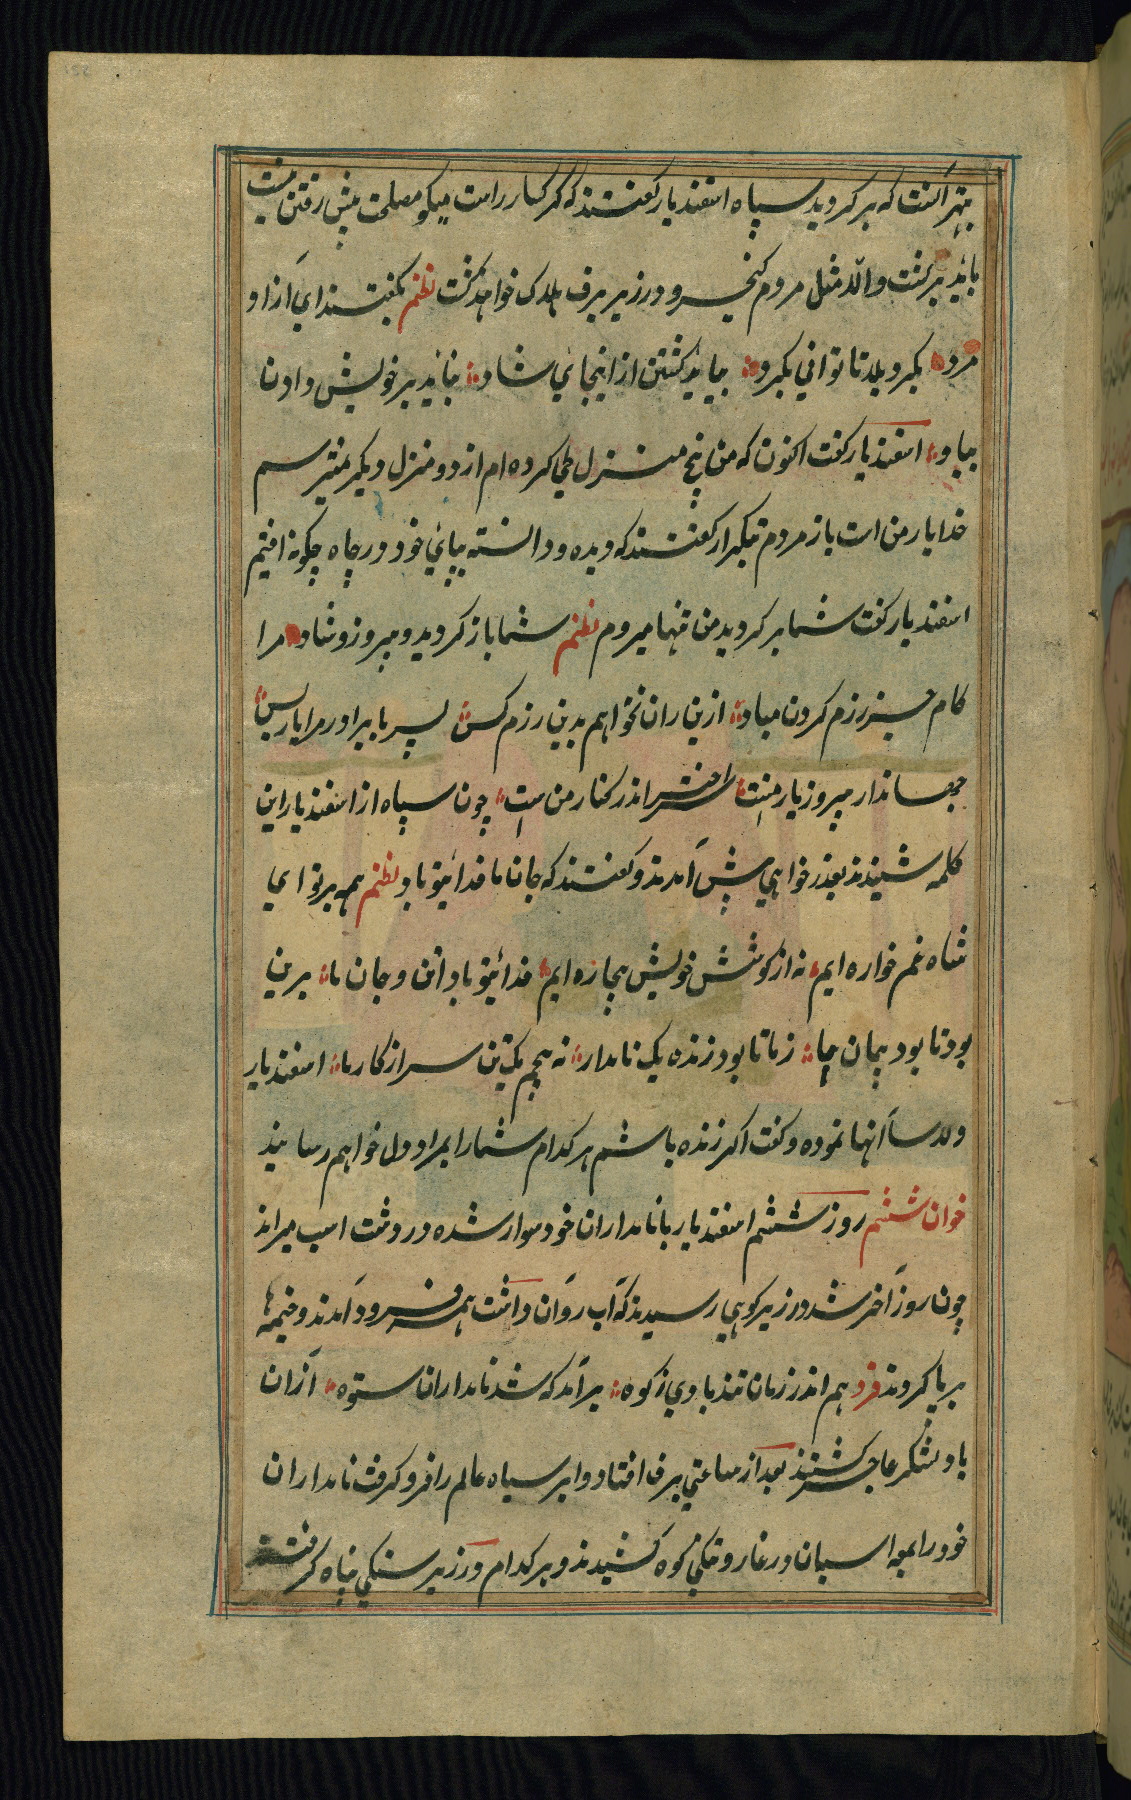 بهتر آنست که برگردید سپاه اسفندیار گفتند که گرگسار راست میگو مصلحت پیش رفتن نیست
باید برگشت والا مثل مردم کیخسرو در زیر برف هلاک خواهد گشت نظم بگفتند ای آزاد
مرد بگرد بلا تا توانی بگرد بباید گشتن از اینجای شاد نباید بر خویش دادن
بباد اسفندیار گفت اکنون که من پنج منزل طی کرده ام از دو منزل دیگر نمیترسم
خدا یار من است باز مردم بتکرار گفتند که دیده و دانسته بپای خود در چاه چگونه افتیم
اسفندیار گفت شما برگردید من تنها میروم نظم شما بازگردید و پیروز و شاد مرا
کام جز رزم کردن مباد ازین یاران نخواهم بدین رزم کس پسر با برادر مرا یار بس
جهاندار پیروز یار منست سر اختر اندر کنار من است چون سپاه از اسفندیار این
کلمه شنیدند بعذر خواهی پیش آمدند و گفتند که جان ما فدای تو باد نظم همه بر تو ای
شاه غم خواره ایم نه از کوشش خویش بیچاره ایم فدای تو بادا تن و جان ما برین
بود تا بود پیمان ما ز ما تا بود زنده یک نامدار نه پیچیم یکتن سر از کار ما اسفندیار
دلاسا آنها نموده و گفت اگر زنده باشم هر کدام شما را بمراد دل خواهم رسانید
خوان ششم روز ششم اسفندیار با نامداران خود سوار شده در دشت اسب میراند
چون روز آخر شد در زیر کوهی رسیدند که آب روان داشت همه فرود آمدند و خیمه ها
برپا کردند فرد هم اندر زمان تند بادی ز کوه برآمد که شد نامداران ستوه از آن
باد لشکر عاجز گشتند بعد از ساعتی برف افتاد و ابر سیاه عالم را فرو گرفت نامداران
خود را بمعه اسپان در غار و تنگی کوه کشیدند و هر کدام در زیر سنگی پناه گرفتند